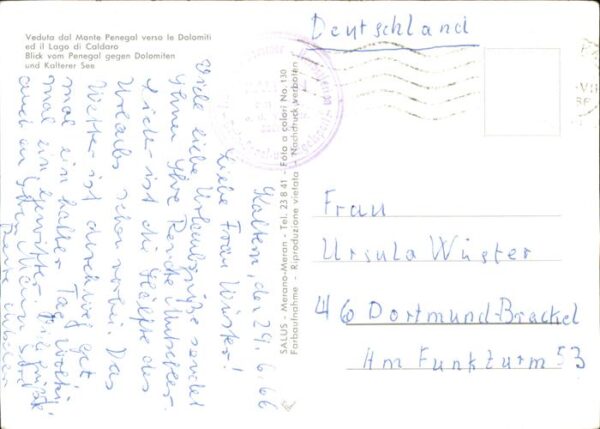 Veduta dal Monte Penegal verso le Dolomiti
ed il Lago di Caldaro
Blick vom Penegal gegen Dolomiten
und Kalterer See
Deutschland
Kaltern, den 24.6.66
Liebe Frau Wüster!
Viele liebe Urlaubsgrüße sendet
Ihnen Ihre Renate
Leider ist die Hälfte des
Urlaubs schon vorbei. Das
Wetter ist durchweg gut
mal ein halber Tag wolkig
mal ein Gewitter. Viele Grüße
auch an Ihren Mann
SALUS - Merano-Meran - Tel. 23 8 41 - Foto a colori No. 130
Farbaufnahme - Riproduzione vietata - Nachdruck verboten
Frau
Ursula Wüster
46 Dortmund-Brackel
Am Funkturm 53